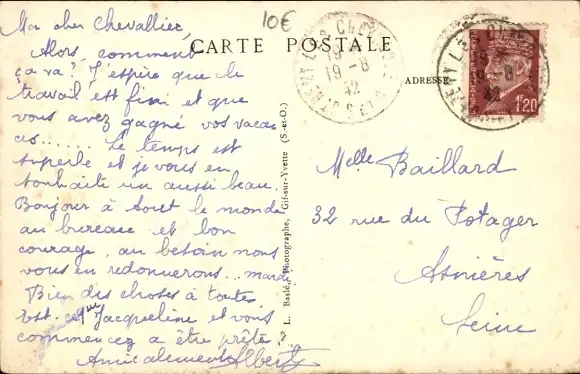 Mon cher Chevallier
Alors, comment
ça va? J'espère que le
travail est fini et que
vous avez gagné vos vacan
ces....... Le temps est
superbe et je vous en
souhaite un aussi beau.
Bonjour à tout le monde
au bureau et bon
courage, au besoin nous
vous en redonnerons... mardi
Bien des choses à toutes.
Est-ce que Jacqueline et vous
commencez a être prête?
Amicalement Albert
10€
CARTE POSTALE
ADRESSE
19-8
42
1F20
L. Baslé, Photographe, Gif-sur-Yvette (S.-et-O.)
Melle Baillard
32 rue du Potager
Asnières
Seine